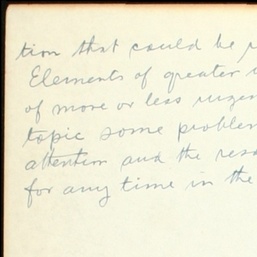 tion that could be
Elements of greater
of more or less urgen
topic some problem
attention and the
for any time in the